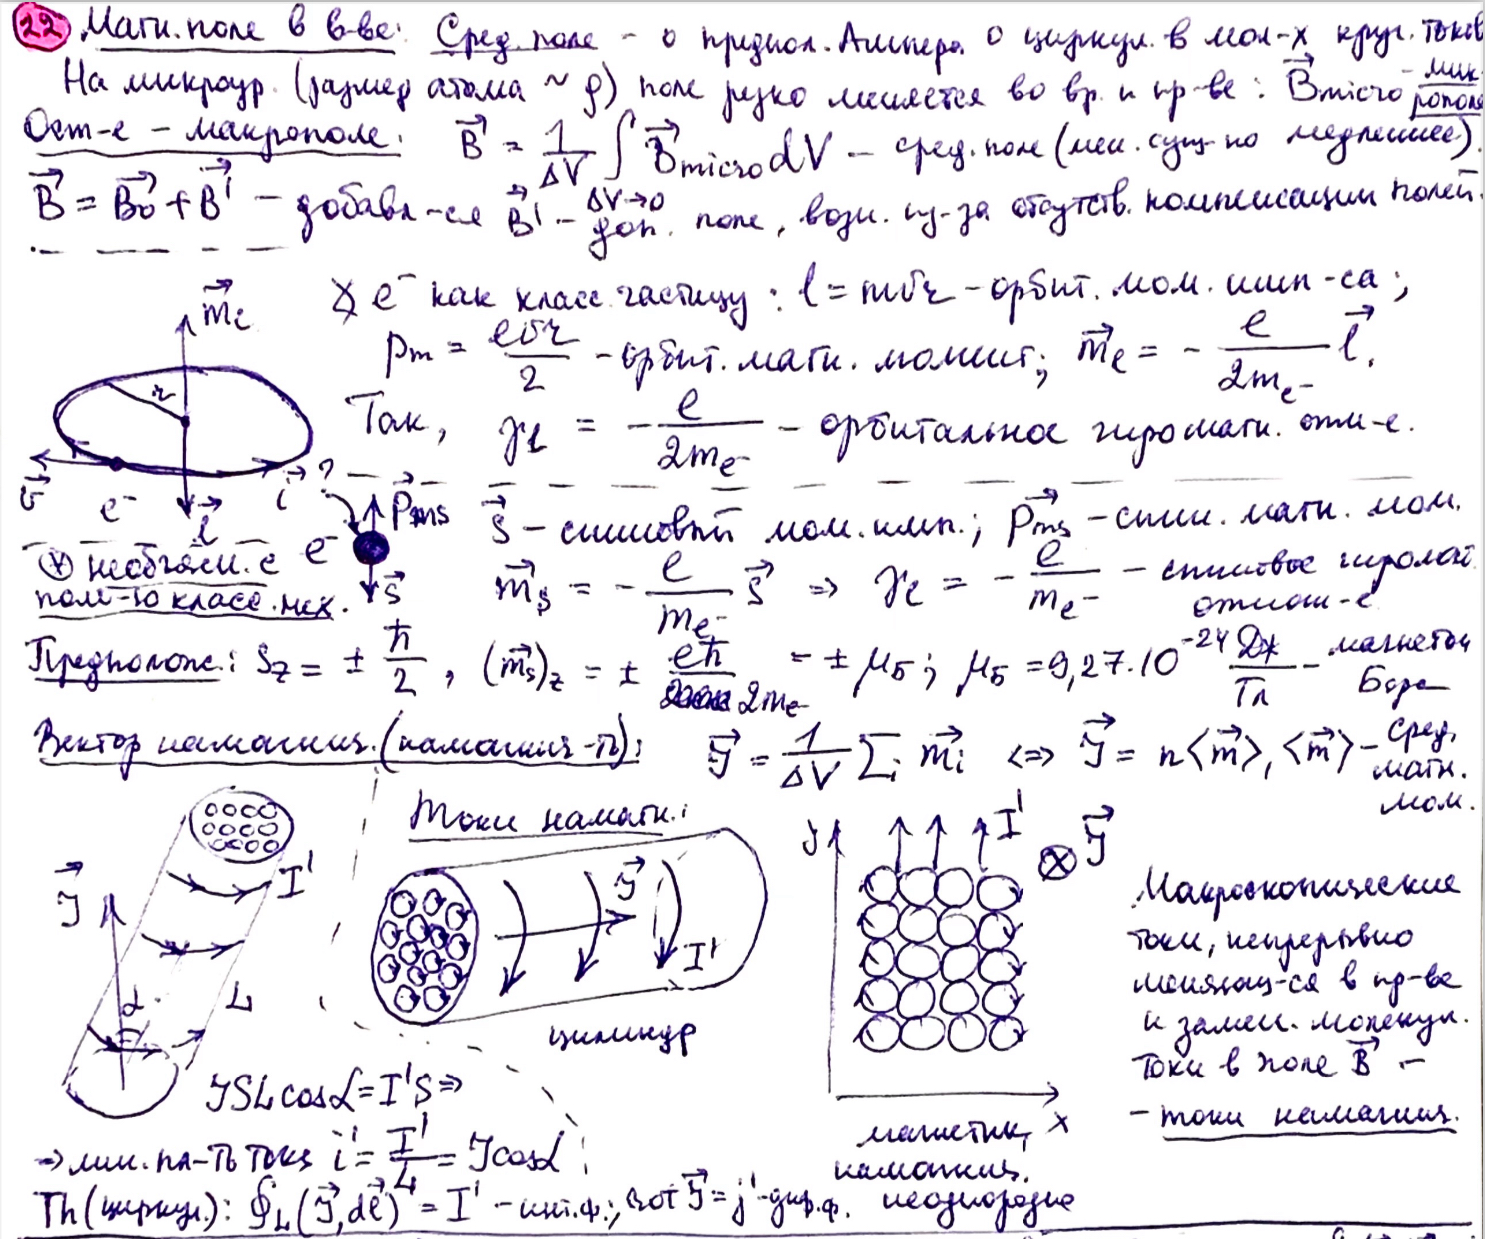 22 Магн. поле в в-ве: Сред. поле – о предпол. Ампера о циркул. в мол-х круг. токов
На микроур. (размер атома ~ ρ) поле резко меняется во вр. и пр-ве: B⃗micro – микрополе
Ост-е – макрополе: B⃗ = 1/ΔV ∫ B⃗micro dV – сред. поле (мен. сущ-но медленнее).
ΔV→0
B⃗ = B⃗₀ + B⃗' – добавл-ся B⃗' – доп. поле, возн. из-за отсутств. компенсации полей.
m⃗e
e⁻ как класс. частицу: l = mvr – орбит. мом. имп-са;
pm = evr/2 – орбит. магн. момент; m⃗e = – e/2me⁻ l⃗.
r
Так, γl = – e/2me⁻ – орбитальное гиромагн. отн-е.
v⃗ e⁻ l⃗ i⃗ ?
e⁻ p⃗ms s⃗
s⃗ – спиновый мом. имп.; p⃗ms – спин. магн. мом.
* необъясн. с
пом-ю класс. мех.
m⃗s = – e/me⁻ s⃗ ⇒ γe = – e/me⁻ – спиновое гиромагн. отнош-е
Предполож.: Sz = ± ħ/2, (m⃗s)z = ± eħ/2me⁻ = ± μБ; μБ = 9,27·10⁻²⁴ Дж/Тл – магнетон Бора
Вектор намагнич. (намагнич-ть): J⃗ = 1/ΔV Σi m⃗i ⇔ J⃗ = n⟨m⃗⟩, ⟨m⃗⟩ – сред. магн. мом.
Токи намагн.:
J⃗ I' α L
J⃗ I'
цилиндр
y I' J⃗ x
магнетик, намагнич. неоднородно
Макроскопические
токи, непрерывно
меняющ-ся в пр-ве
и замен. молекул.
токи в поле B⃗ –
– токи намагнич.
JSL cosα = I'S ⇒
⇒ лин. пл-ть тока i' = I'/L = Jcosα
Th (циркул.): ∮L (J⃗, dℓ⃗) = I' – инт. ф.; rot J⃗ = j' – диф. ф.